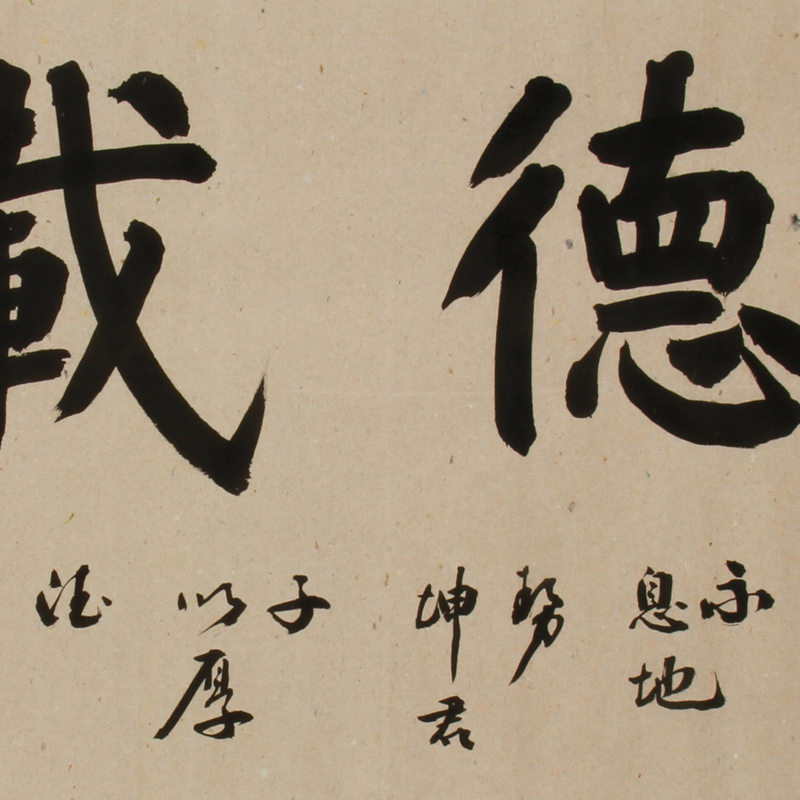 德載
不
息地
勢
坤君
子
以厚
德